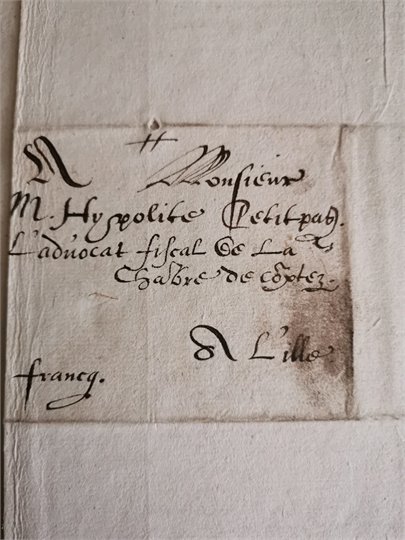 A Monsieur
M. Hypolite Petitpas.
L'advocat fiscal de La
Chābre de cōptez.
A L'ille
francq.